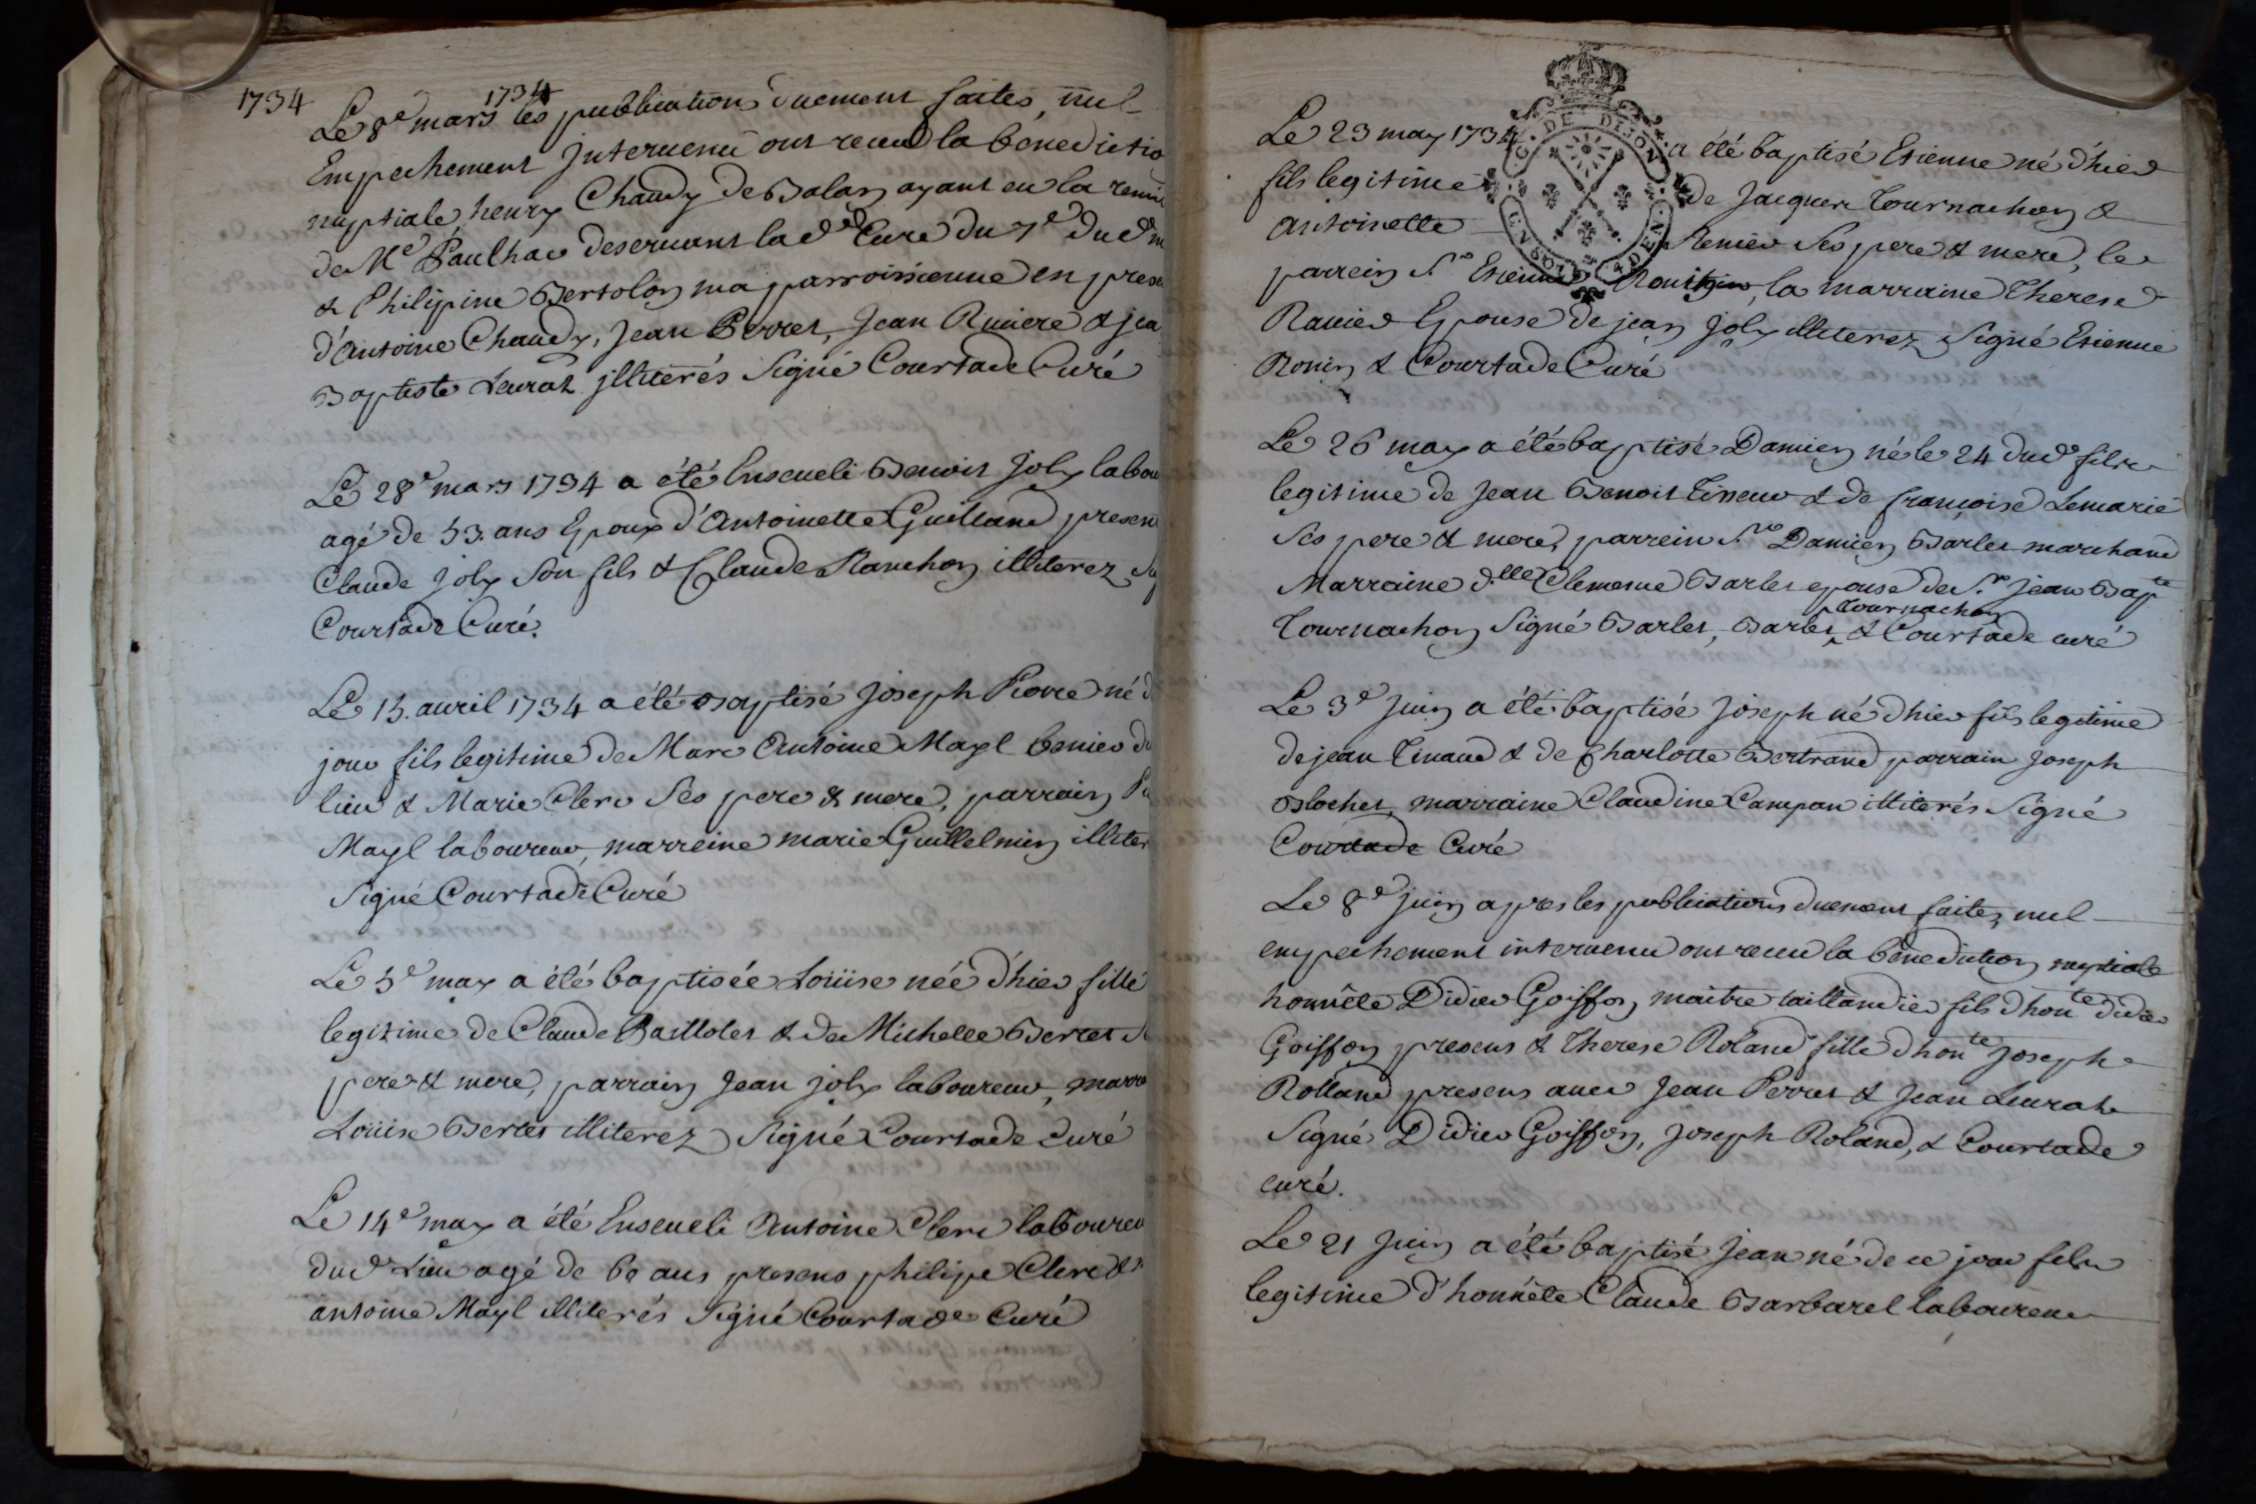 1734
1734
Le 8e mars les publications duement faites, nul
Empechement Jntervenu ont receu la benedictio
nuptiale henry Chaudy de Balan ayant eu la remi
de Me Paulhac deservant la de Cure du 7e dud m
& Philipine Bertolon ma parroissienne en prese
d'Antoine Chaudy, Jean Perret, Jean Riviere & jea
Baptiste Leurat jlliterés Signé Courtade Curé
Le 28e mars 1734 a été Enseveli Benoit Joly labou
agé de 53. ans Epoux d'Antoinette Guilland presen
Claude Joly Son fils & Claude Planchon illiterez
Courtade Curé.
Le 15. avril 1734 a été Baptisé Joseph Pierre né d
jour fils legitime de Marc Antoine Mayl benier du
lieu & Marie Clerc Ses pere & mere, parrain Pi
Mayl laboureur, marreine marie Guillelmin illiter
Signé Courtade Curé
Le 5e may a été baptisée Loüise née d'hier fille
legitime de Claude Baillolet & de Michelle Bertet
pere & mere, parrain Jean joly laboureur, marr
Loüise Bertet illiterez Signé Courtade Curé
Le 14e may a été Enseveli Antoine Clerc laboureu
dud Lieu agé de 60 ans presens philipe Clerc &
antoine Mayl illiterés Signé Courtade Curé
G. DE DIJON
Le 23 may 1734 a été baptisé Etienne né d'hier
fils legitime de Jacques Tournachon &
Antoinette Renier Ses pere & mere, le
parrein Sr Etienne la marraine Therese
Ranier Epouse de jean Joly illiterez Signé Etienne
Ronin & Courtade Curé
Le 26 may a été baptisé Damien né le 24 dud fils
legitime de Jean Benoit Tisseur & de françoise Lemarié
Ses pere & mere, parrein Sr Damien Barlet marchand
Marraine dlle Clemence Barlet epouse de Sr Jean Bapte
Tournachon Signé Barlet, Barlet Tournachon & Courtade curé
Le 3e Juin a été baptisé Joseph né d'hier fils legitime
de jean Tinaud & de Charlotte Bertrand parrain Joseph
Blochet, marraine Claudine Campan illiterés Signé
Courtade Curé
Le 8e Juin apres les publications duement faites, nul
empechement intervenu ont receu la benediction nuptiale
honnête Didier Goiffon maitre taillandier fils d'honte didier
Goiffon presens & Therese Roland fille d'honte Joseph
Rolland presens avec Jean Perret & Jean Leurat
Signé Didier Goiffon, Joseph Roland, & Courtade
curé.
Le 21 Juin a été baptisé Jean né de ce jour fils
legitime d'honnête Claude Barbarel laboureur